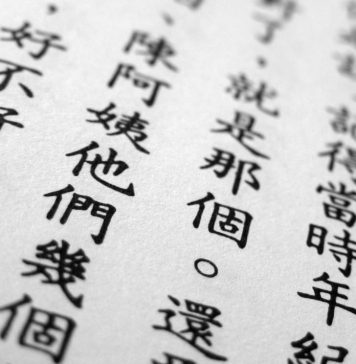 記得當時年紀
了，就是那個。還
、陳阿姨他們幾個
，好不好